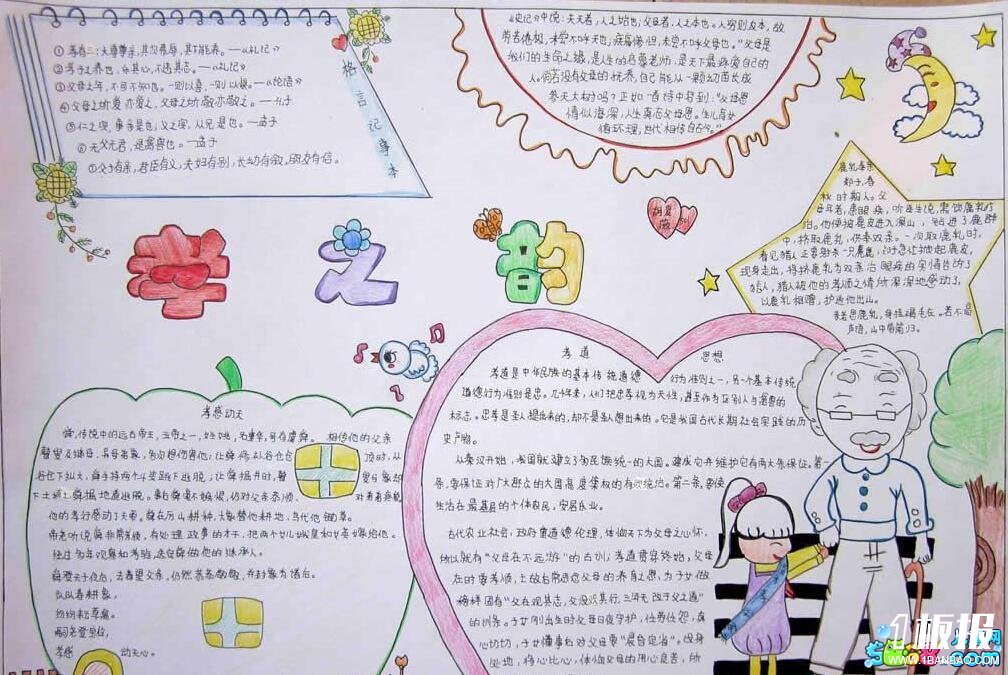 ①孝有三：大尊尊亲，其次弗辱，其下能养。—《礼记》
②孝子之养也，乐其心，不违其志。—《礼记》
③父母之年，不可不知也。一则以喜，一则以惧。—《论语》
④父母之所爱亦爱之，父母之所敬亦敬之。—孔子
⑤仁之实，事亲是也；义之实，从兄是也。—孟子
⑥无父无君，是禽兽也。—孟子
⑦父子有亲，君臣有义，夫妇有别，长幼有叙，朋友有信。
格言记事本
《史记》中说：夫天者，人之始也；父母者，人之本也。人穷则反本，故
劳苦倦极，未尝不呼天也；疾痛惨怛，未尝不呼父母也。"父母是
我们的生命之源，是人生的启蒙老师，是天下最疼爱自己的
人。倘若没有父母的抚养，自己能从一颗幼苗长成
参天大树吗？正如一首诗中写到："父母恩
情似海深，人生莫忘父母恩。生儿育女
循环理，世代相传自古今。"
鹿乳奉亲
郯子，春
秋时期人。父
母年老，患眼疾，
中，挤取鹿乳，供奉双亲。一次取鹿乳时，
现身走出，将挤鹿乳为双亲治眼疾的实情告诉了
猎人，猎人被他的孝顺之情所深深地感动了，
以鹿乳相赠，护送他出山。
亲老思鹿乳，身挂褐毛衣。若不高
声语，山中带箭归。
孝之韵
孝感动天
舜，传说中的远古帝王，五帝之一，姓姚，名重华，号有虞舜。相传他的父亲
瞽叟及继母、异母弟象，多次想伤害他：让舜修谷仓仓顶时，从
谷仓下纵火，舜手持两个斗笠跳下逃脱；让舜掘井时，瞽叟与象却
下土，舜掘地道逃脱。事后舜毫不嫉恨，仍对父亲恭顺，对弟弟慈爱。
他的孝行感动了天帝。舜在历山耕种，大象替他耕地，鸟代他锄草。
帝尧听说舜非常孝顺，有处理政事的才干，把两个女儿娥皇和女英嫁给他。
经过多年观察和考验，选定舜做他的继承人。
舜登天子位后，去看望父亲，仍然恭恭敬敬，并封象为诸侯。
队队春耕象，
纷纷耘草禽。
嗣尧登宝位，
孝感动天心。
孝道思想
孝道是中华民族的基本传统道德行为准则之一，另一个基本传统
道德行为准则是忠。几千年来，人们把忠孝视为天性，甚至作为区别人与禽兽的
标志。忠孝是圣人提出来的，却不是圣人想出来的。它是我国古代长期社会实践的历
史产物。
从秦汉开始，我国就建立了多民族统一的大国。建成它并维护它有两大条保证。第一
条，要保证对广大群众的大国高度集权的有效统治。第二条，要使
生活在最基层的个体农民，安居乐业。
古代农业社会，政府重道德伦理，体恤天下为父母之心怀，
所以就有"父母在不远游"的古训；孝道贯穿终始，父母
在时要孝顺，
榜样固有"父在观其志，父没观其行，三年无改于父之道"
的训条。
心切切，
处地，将心比心，体恤父母的用心良苦，所
1板报
WWW.1BANBAO.COM